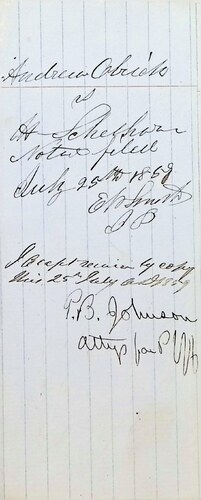 Andrew Obrick
vs
H Schelhorn
Note filed
July 25th 1859
E P Smith
J P
I Except service by copy
this 25th July AD 1859
P. B. Johnson
attys for Plff